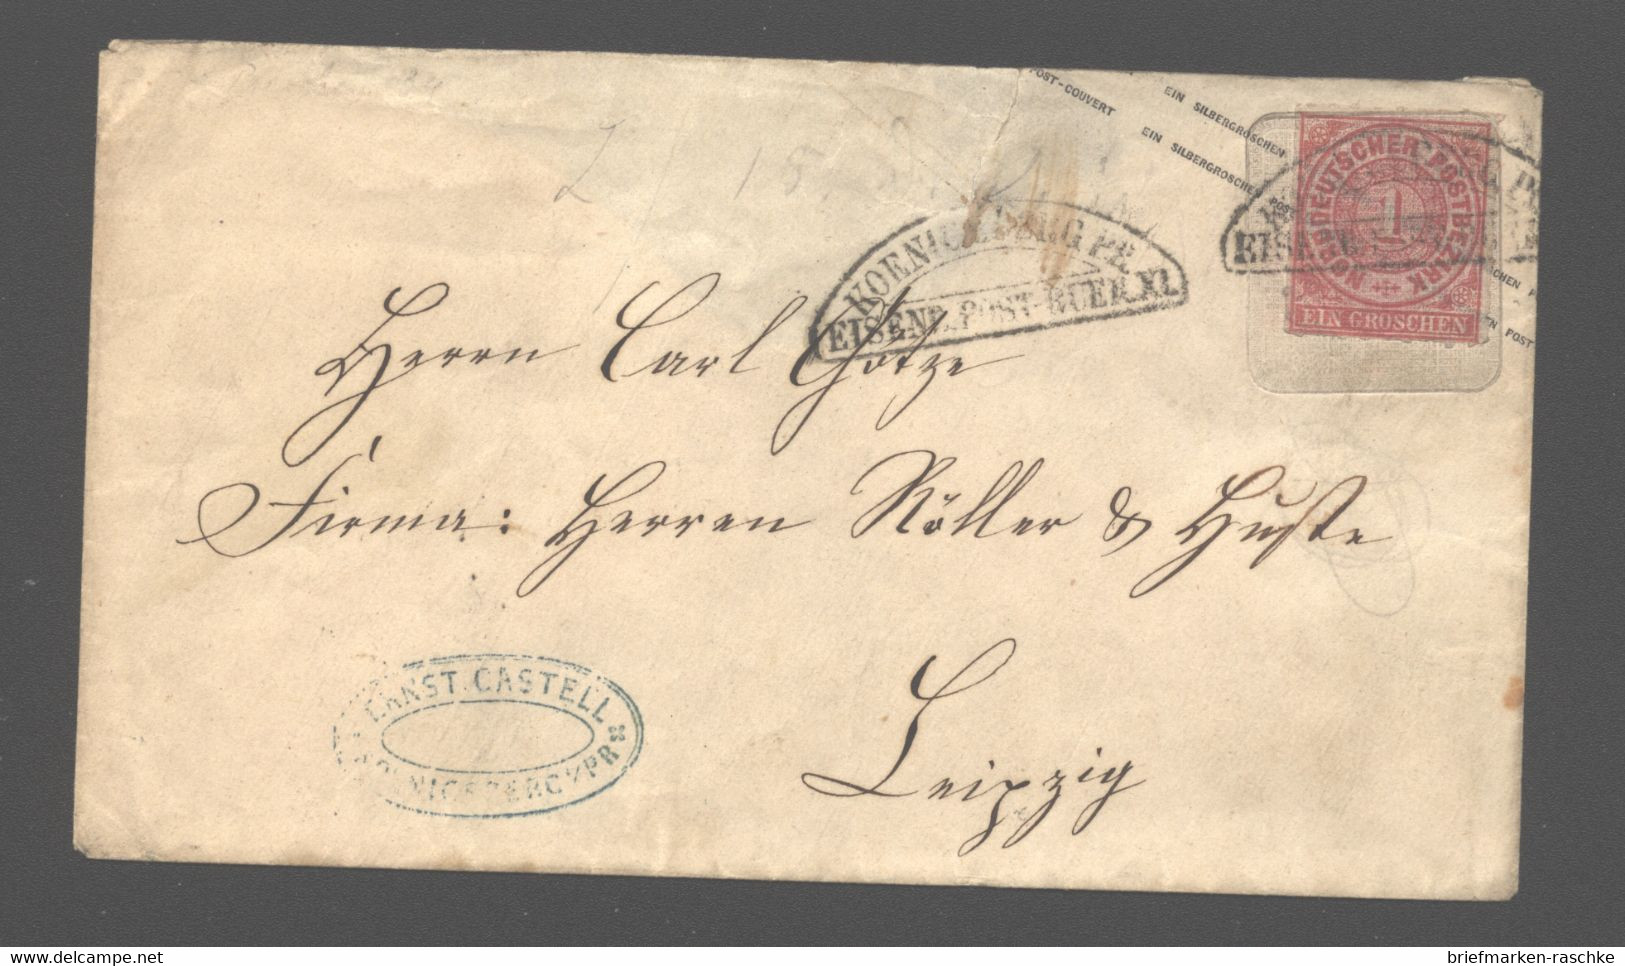 POST-COUVERT
EIN SILBERGROSCHEN
EIN SILBERGROSCHEN
NORDDEUTSCHER POSTBEZIRK
1
EIN GROSCHEN
EN POST
KOENIGSBERG PR.
EISENB. POST-BUER. XI.
EISENB.
Herrn Carl Götze
Firma: Herren Röller & Huste
Leipzig
ERNST CASTELL
KOENIGSBERG I/PR
briefmarken-raschke